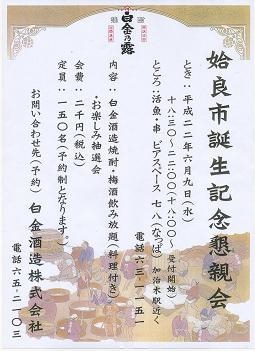 白金乃露
姶良市誕生記念懇親会
とき：平成二二年六月九日（水）
十八：三〇～二二：〇〇（十八：〇〇～受付開始）
ところ：活魚・串 ビアスペース 七八（なっぱ）加治木駅近く
電話 六三－一一五一
内容：白金酒造焼酎・梅酒飲み放題（料理付き）
・お楽しみ抽選会
会費：二千円（税込）
定員：一五〇名（予約制となります。）
お問い合わせ先（予約） 白金酒造株式会社
電話 六五－二一〇三